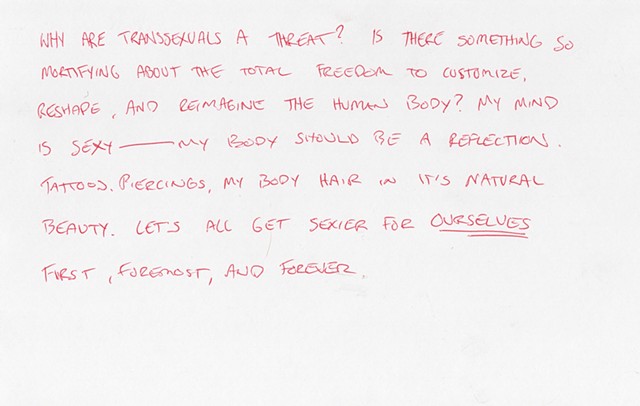 WHY ARE TRANSSEXUALS A THREAT? IS THERE SOMETHING SO
MORTIFYING ABOUT THE TOTAL FREEDOM TO CUSTOMIZE,
RESHAPE, AND REIMAGINE THE HUMAN BODY? MY MIND
IS SEXY — MY BODY SHOULD BE A REFLECTION.
TATTOOS. PIERCINGS, MY BODY HAIR IN IT'S NATURAL
BEAUTY. LET'S ALL GET SEXIER FOR OURSELVES
FIRST, FOREMOST, AND FOREVER.